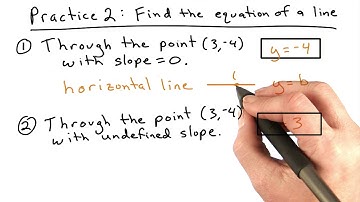 Practice 2: Find the equation of a line
① Through the point (3,-4) with slope = 0.
y = -4
horizontal line
y = b
② Through the point (3,-4) with undefined slope.
3